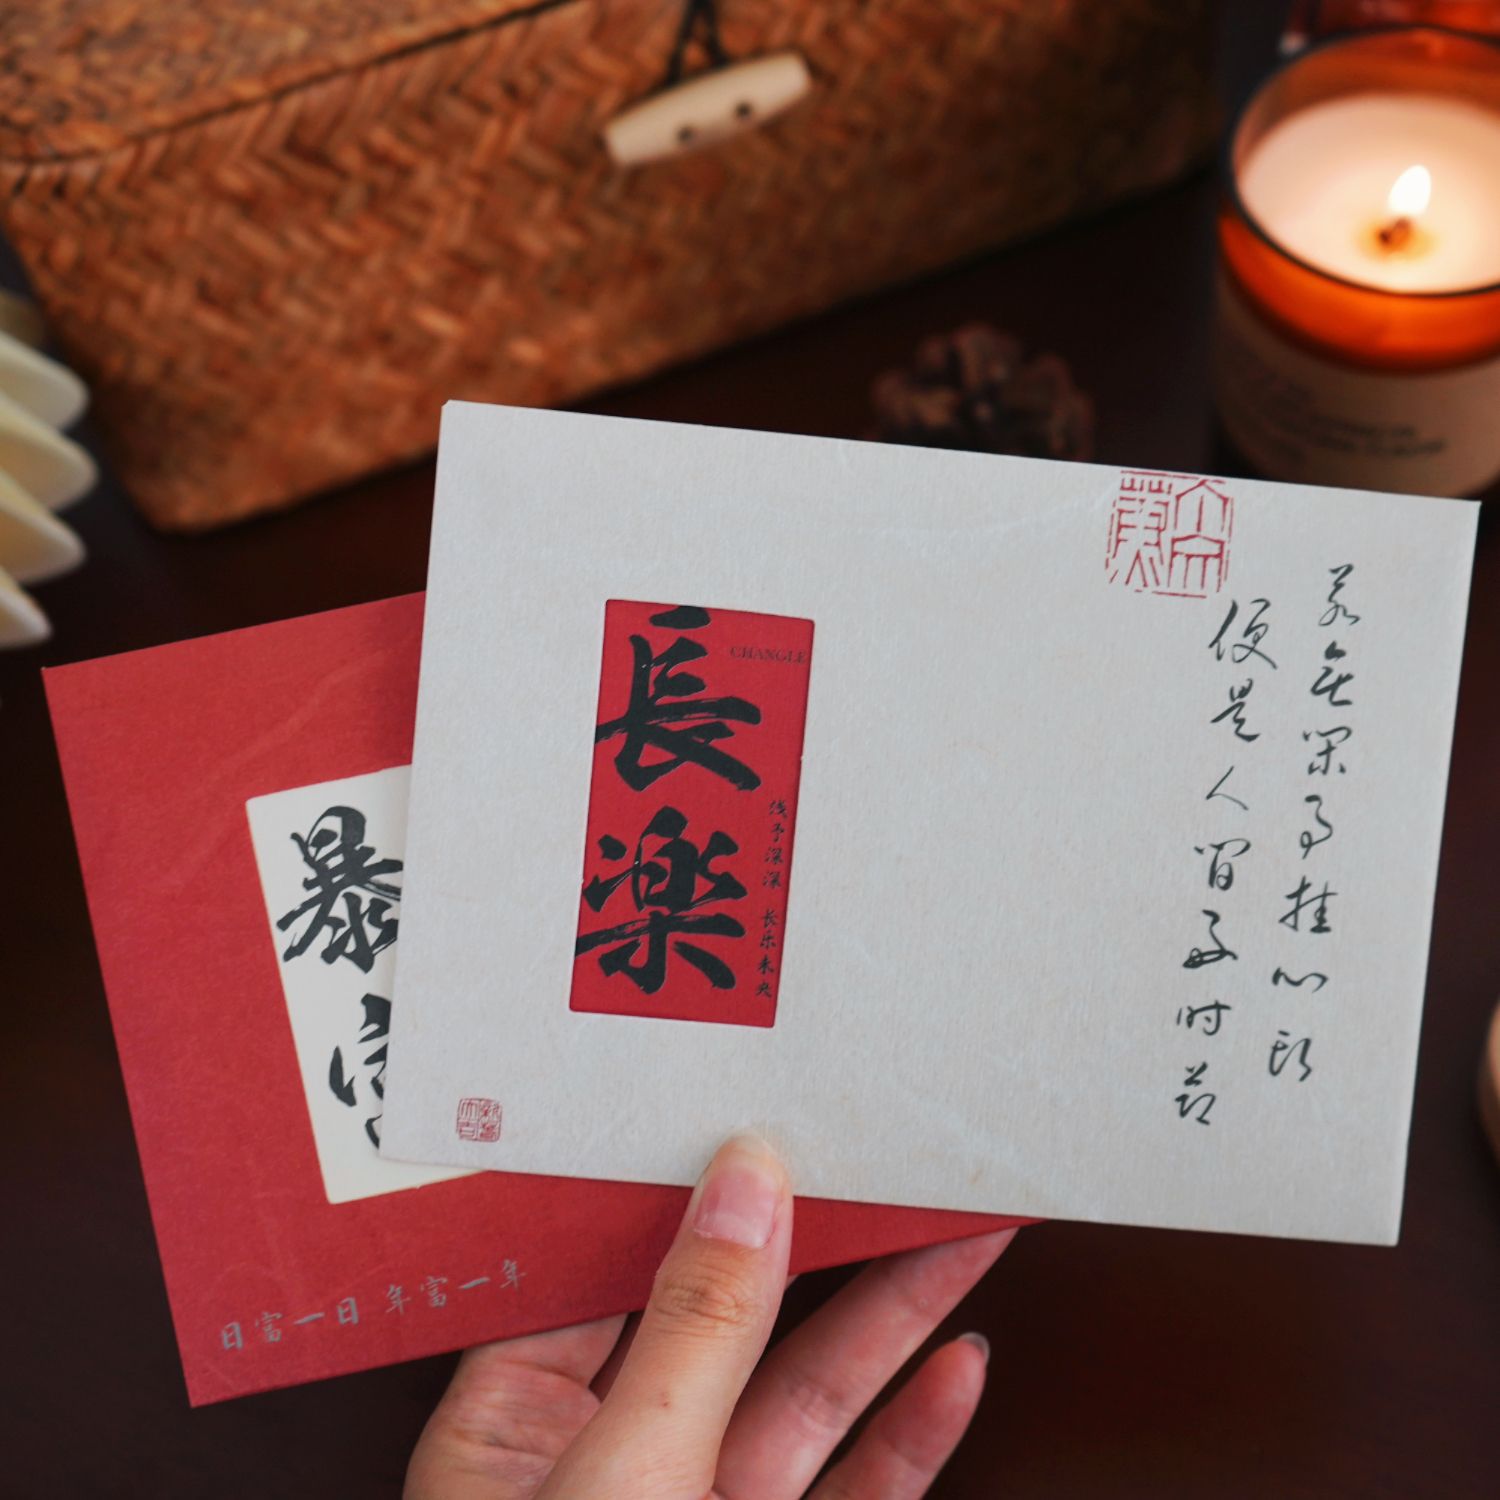 長樂
CHANGLE
浅予深深 长乐未央
若无闲事挂心头
便是人间好时节
暴富
日富一日 年富一年